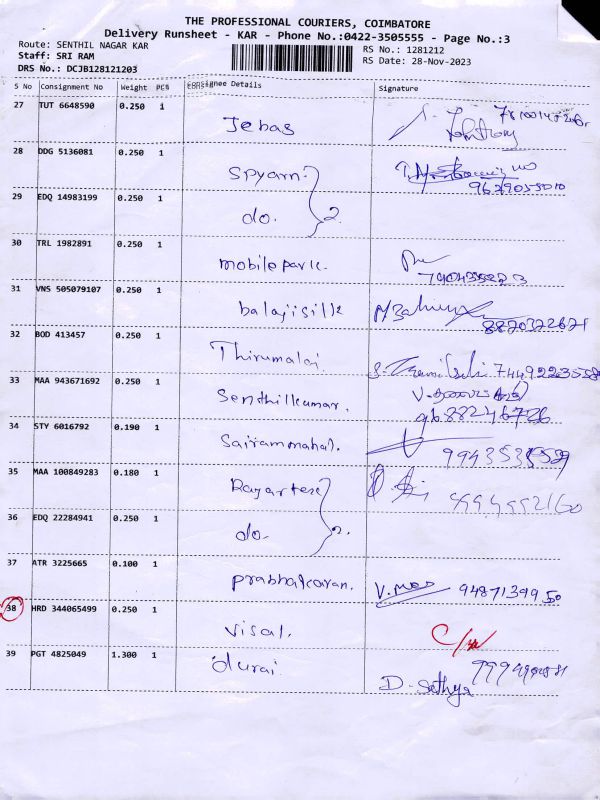 THE PROFESSIONAL COURIERS, COIMBATORE
Delivery Runsheet - KAR - Phone No.:0422-3505555 - Page No.:3
Route: SENTHIL NAGAR KAR RS No.: 1281212
Staff: SRI RAM RS Date: 28-Nov-2023
DRS No.: DCJB128121203
S No Consignment No Weight PCS Consignee Details Signature
27 TUT 6648590 0.250 1
Jebas
28 DDG 5136081 0.250 1
Spyarn
9629055010
29 EDQ 14983199 0.250 1
do. 2.
30 TRL 1982891 0.250 1
mobilepark.
31 VNS 505079107 0.250 1
balajisilk
8870322671
32 BOD 413457 0.250 1
Thirumalai.
33 MAA 943671692 0.250 1
Senthilkumar.
34 STY 6016792 0.190 1
Sairammahal.
35 MAA 100849283 0.180 1
36 EDQ 22284941 0.250 1
do. 2.
37 ATR 3225665 0.100 1
Prabhakaran. 9487139950
38 HRD 344065499 0.250 1
visal.
39 PGT 4825049 1.300 1
durai
D. Sathya